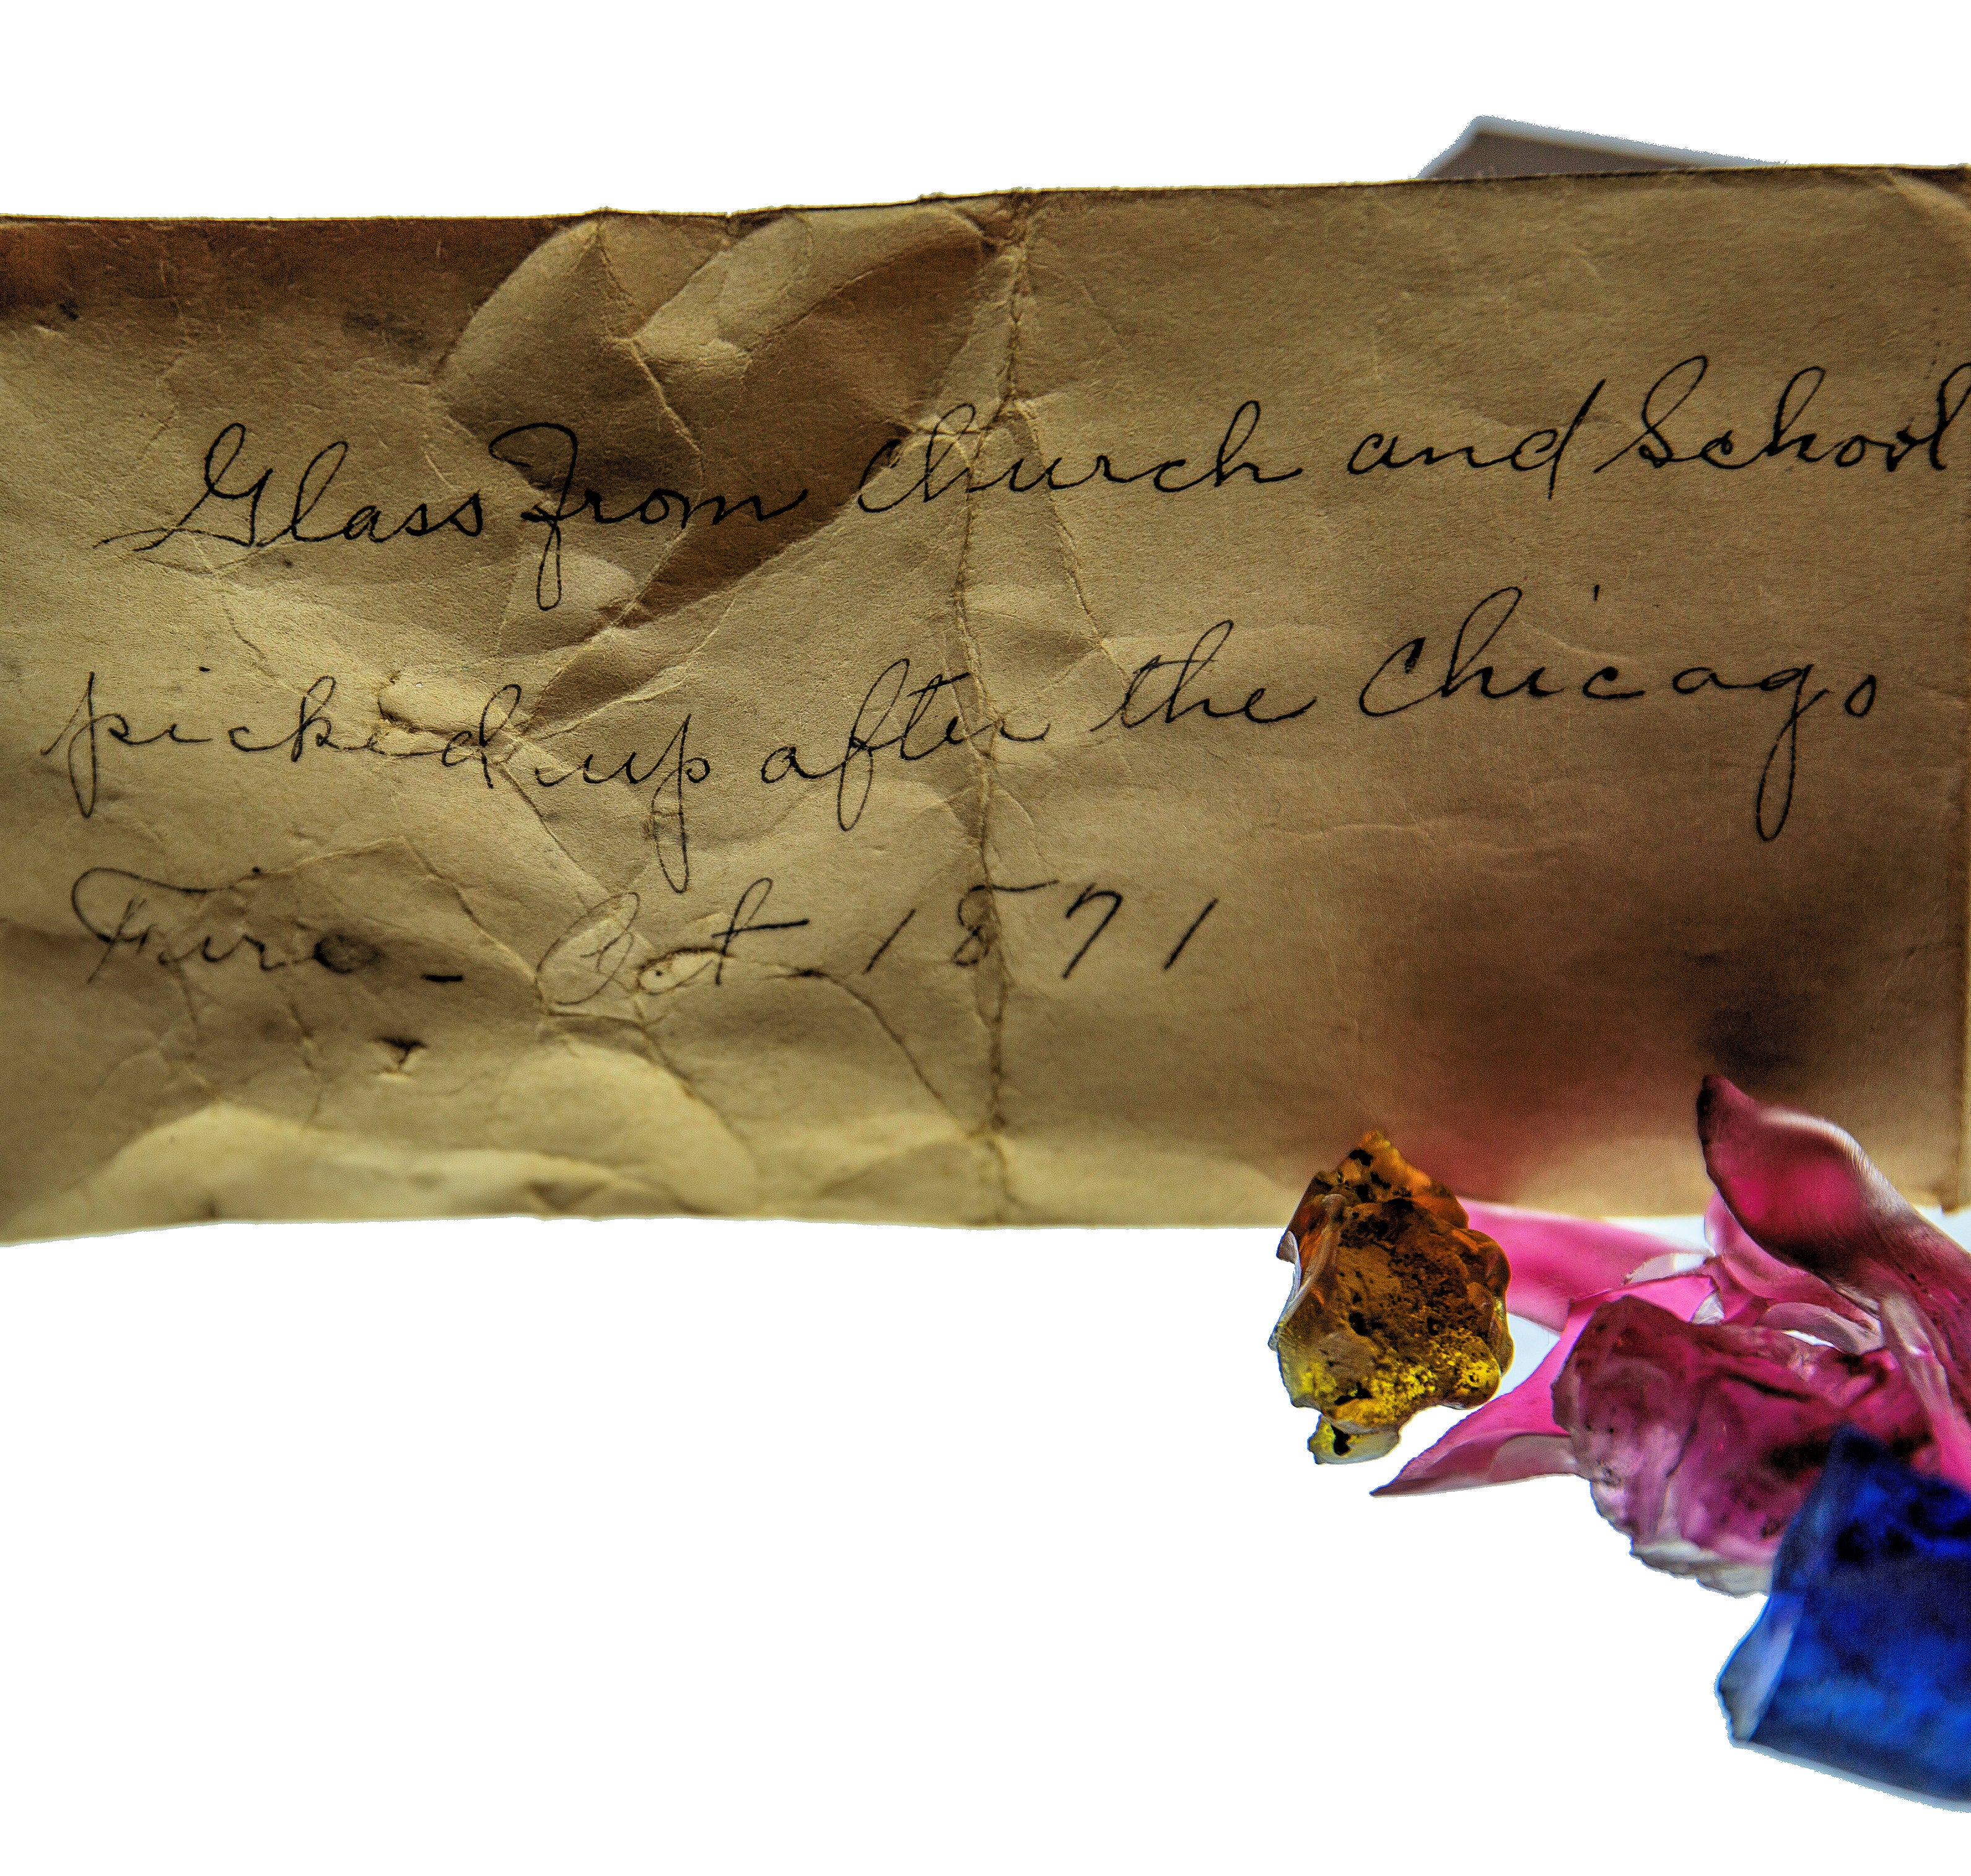 Glass From Church and School
picked up after the Chicago
Fire - Oct 1871